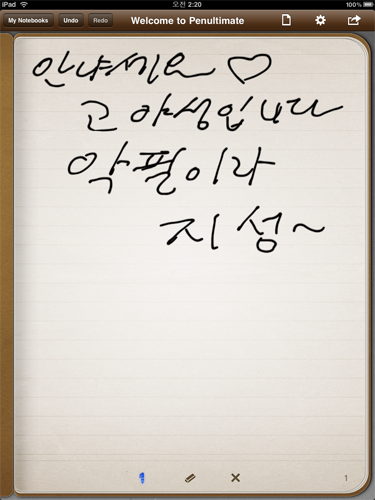 iPad 오전 2:20 100%
My Notebooks Undo Redo Welcome to Penultimate
안냐세요♡
고 야성입니다
악필이라
지성~
1